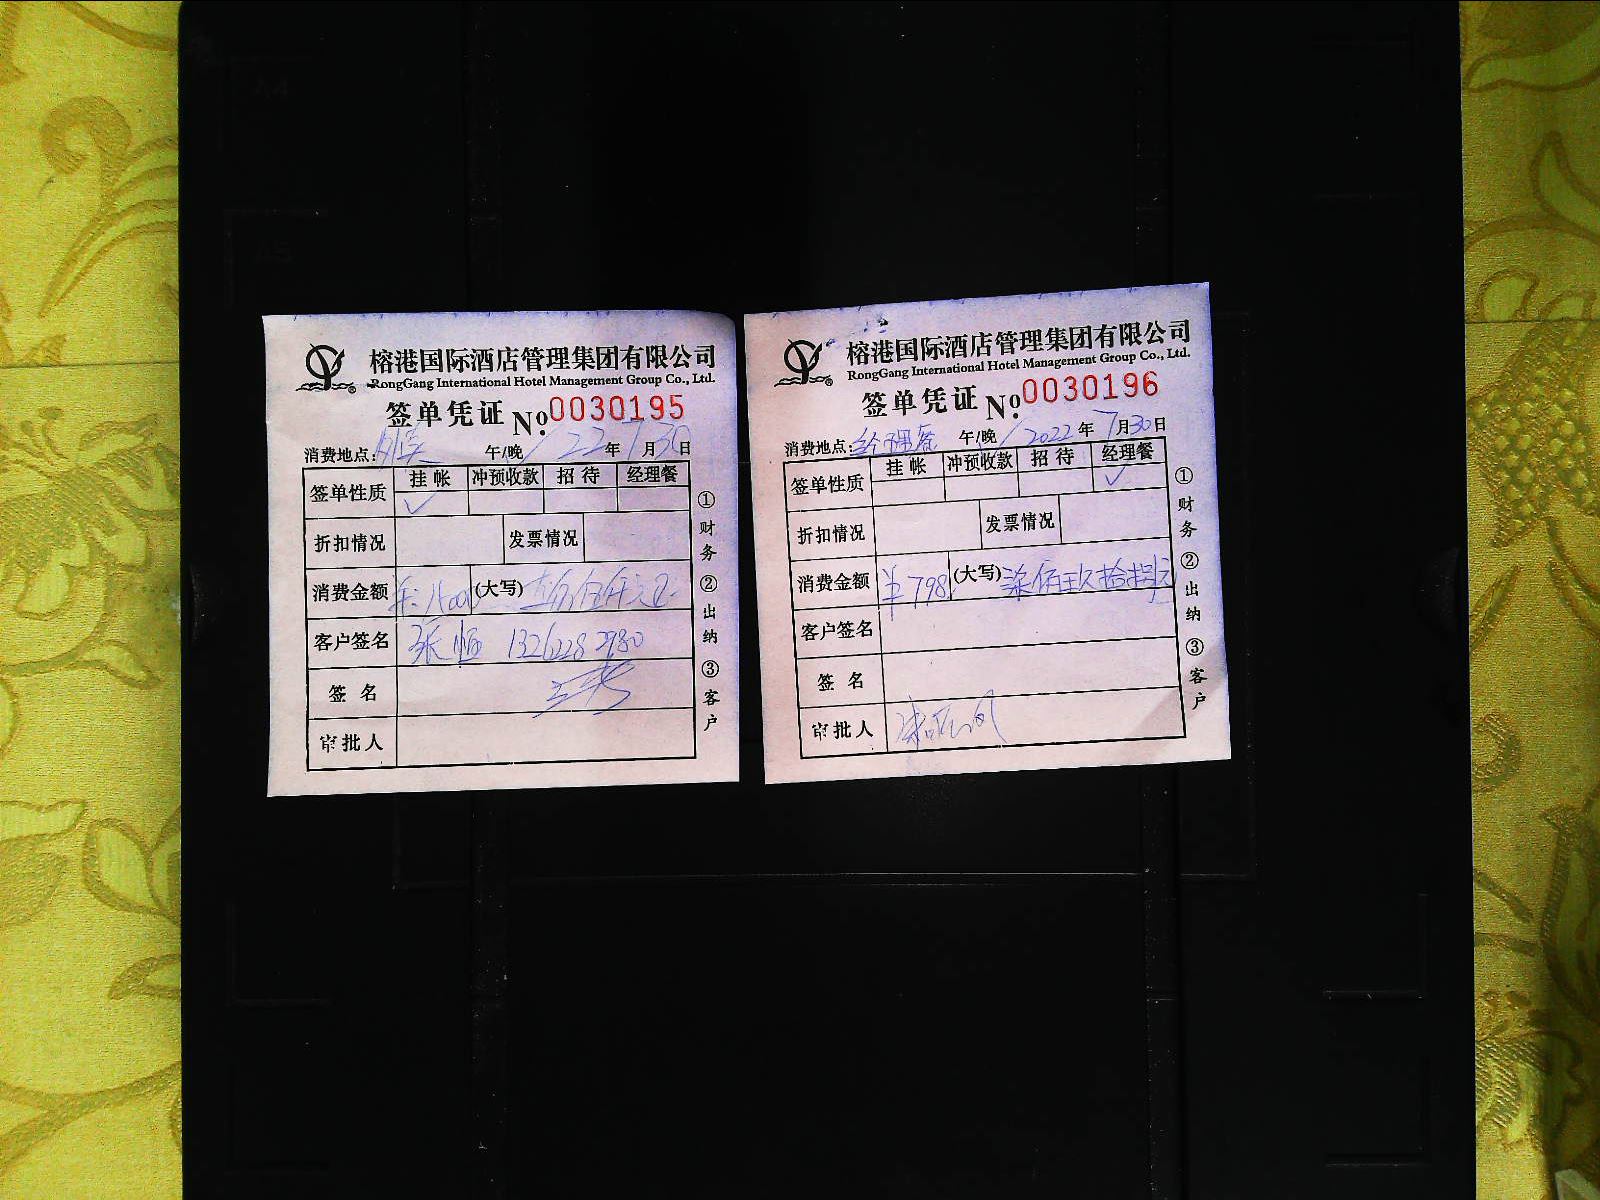 榕港国际酒店管理集团有限公司
RongGang International Hotel Management Group Co., Ltd.
签单凭证 No. 0030195
消费地点: 午/晚 22年7月30日
签单性质 挂帐 冲预收款 招待 经理餐
✓
折扣情况 发票情况
消费金额 (大写)
客户签名 张恒 13262282980
签名
审批人
①财务 ②出纳 ③客户
榕港国际酒店管理集团有限公司
RongGang International Hotel Management Group Co., Ltd.
签单凭证 No. 0030196
消费地点: 经理餐 午/晚 2022年7月30日
签单性质 挂帐 冲预收款 招待 经理餐
✓
折扣情况 发票情况
消费金额 ¥798 (大写) 柒佰玖拾捌元
客户签名
签名
审批人
①财务 ②出纳 ③客户